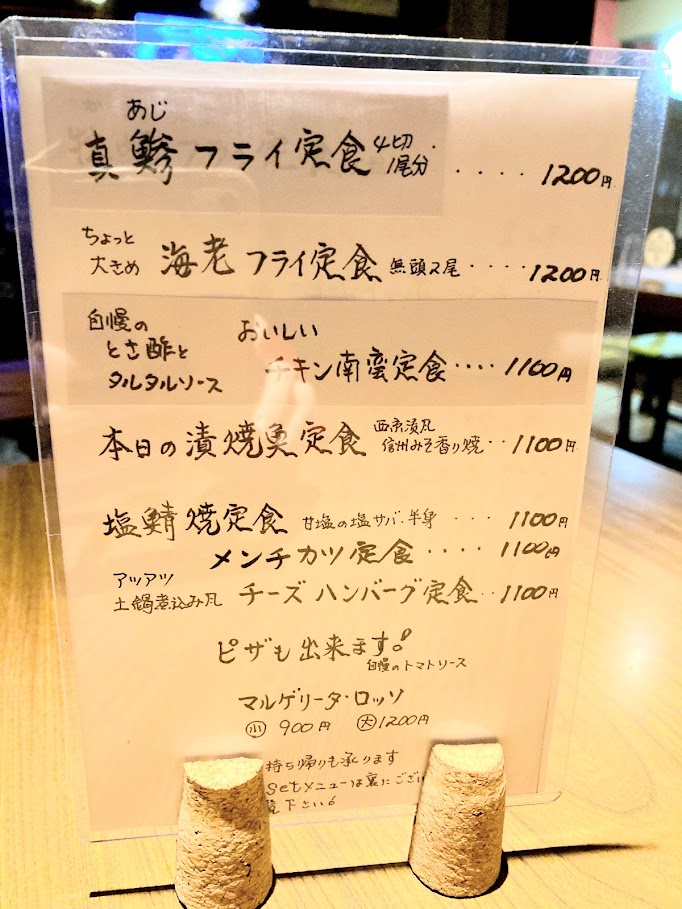 あじ
真鯵フライ定食 4切 1尾分 ‥‥ 1200円
ちょっと
大きめ 海老フライ定食 無頭2尾 ‥‥ 1200円
自慢の
とさ酢と
タルタルソース
おいしい
チキン南蛮定食 ‥‥ 1100円
西京漬風
本日の漬焼魚定食 信州みそ香り焼 ‥ 1100円
塩鯖焼定食 甘塩の塩サバ・半身 ‥‥ 1100円
メンチカツ定食 ‥‥ 1100円
アツアツ
土鍋煮込み風 チーズハンバーグ定食 ‥ 1100円
ピザも出来ます!
自慢のトマトソース
マルゲリータ・ロッソ
小 900円 大 1200円
持ち帰りも承ります
setメニューは裏にござい
下さい